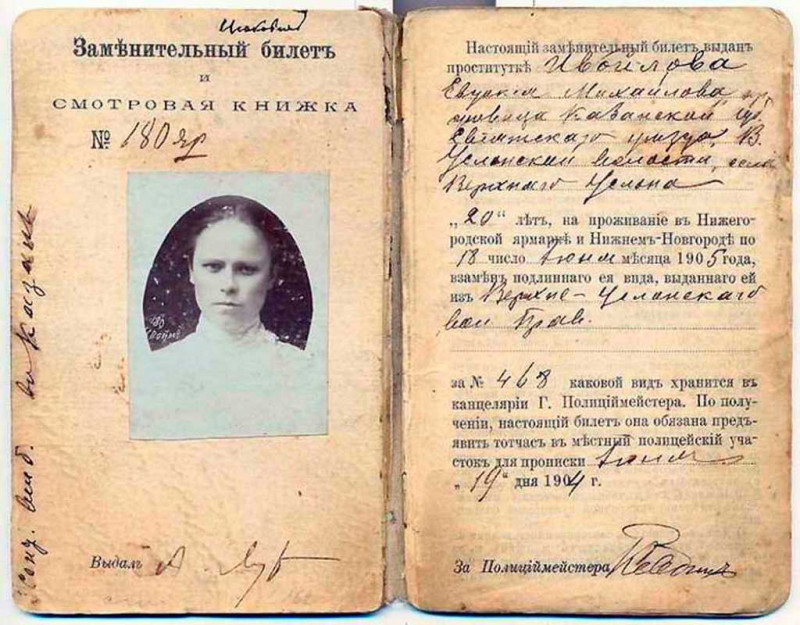 Замѣнительный билетъ
и
СМОТРОВАЯ КНИЖКА
№ 180 яр
Выдалъ
въ Казань
Настоящій замѣнительный билетъ выданъ
проституткѣ Ивойлова
Евдокія Михайлова кр.
Казанской губ.
Свіяжскаго уѣзда, В.
Услонской волости, села
Верхняго Услона
„20“ лѣтъ, на проживаніе въ Нижего-
родской ярмаркѣ и Нижнемъ-Новгородѣ по
18 число Іюня мѣсяца 1905 года,
взамѣнъ подлиннаго ея вида, выданнаго ей
изъ Верхне-Услонскаго
вол. Прав.
за № 468 каковой видъ хранится въ
канцеляріи Г. Полиціймейстера. По полу-
ченіи, настоящій билетъ она обязана предъ-
явить тотчасъ въ мѣстный полицейскій уча-
стокъ для прописки Іюня
„19“ дня 1904 г.
За Полиціймейстера